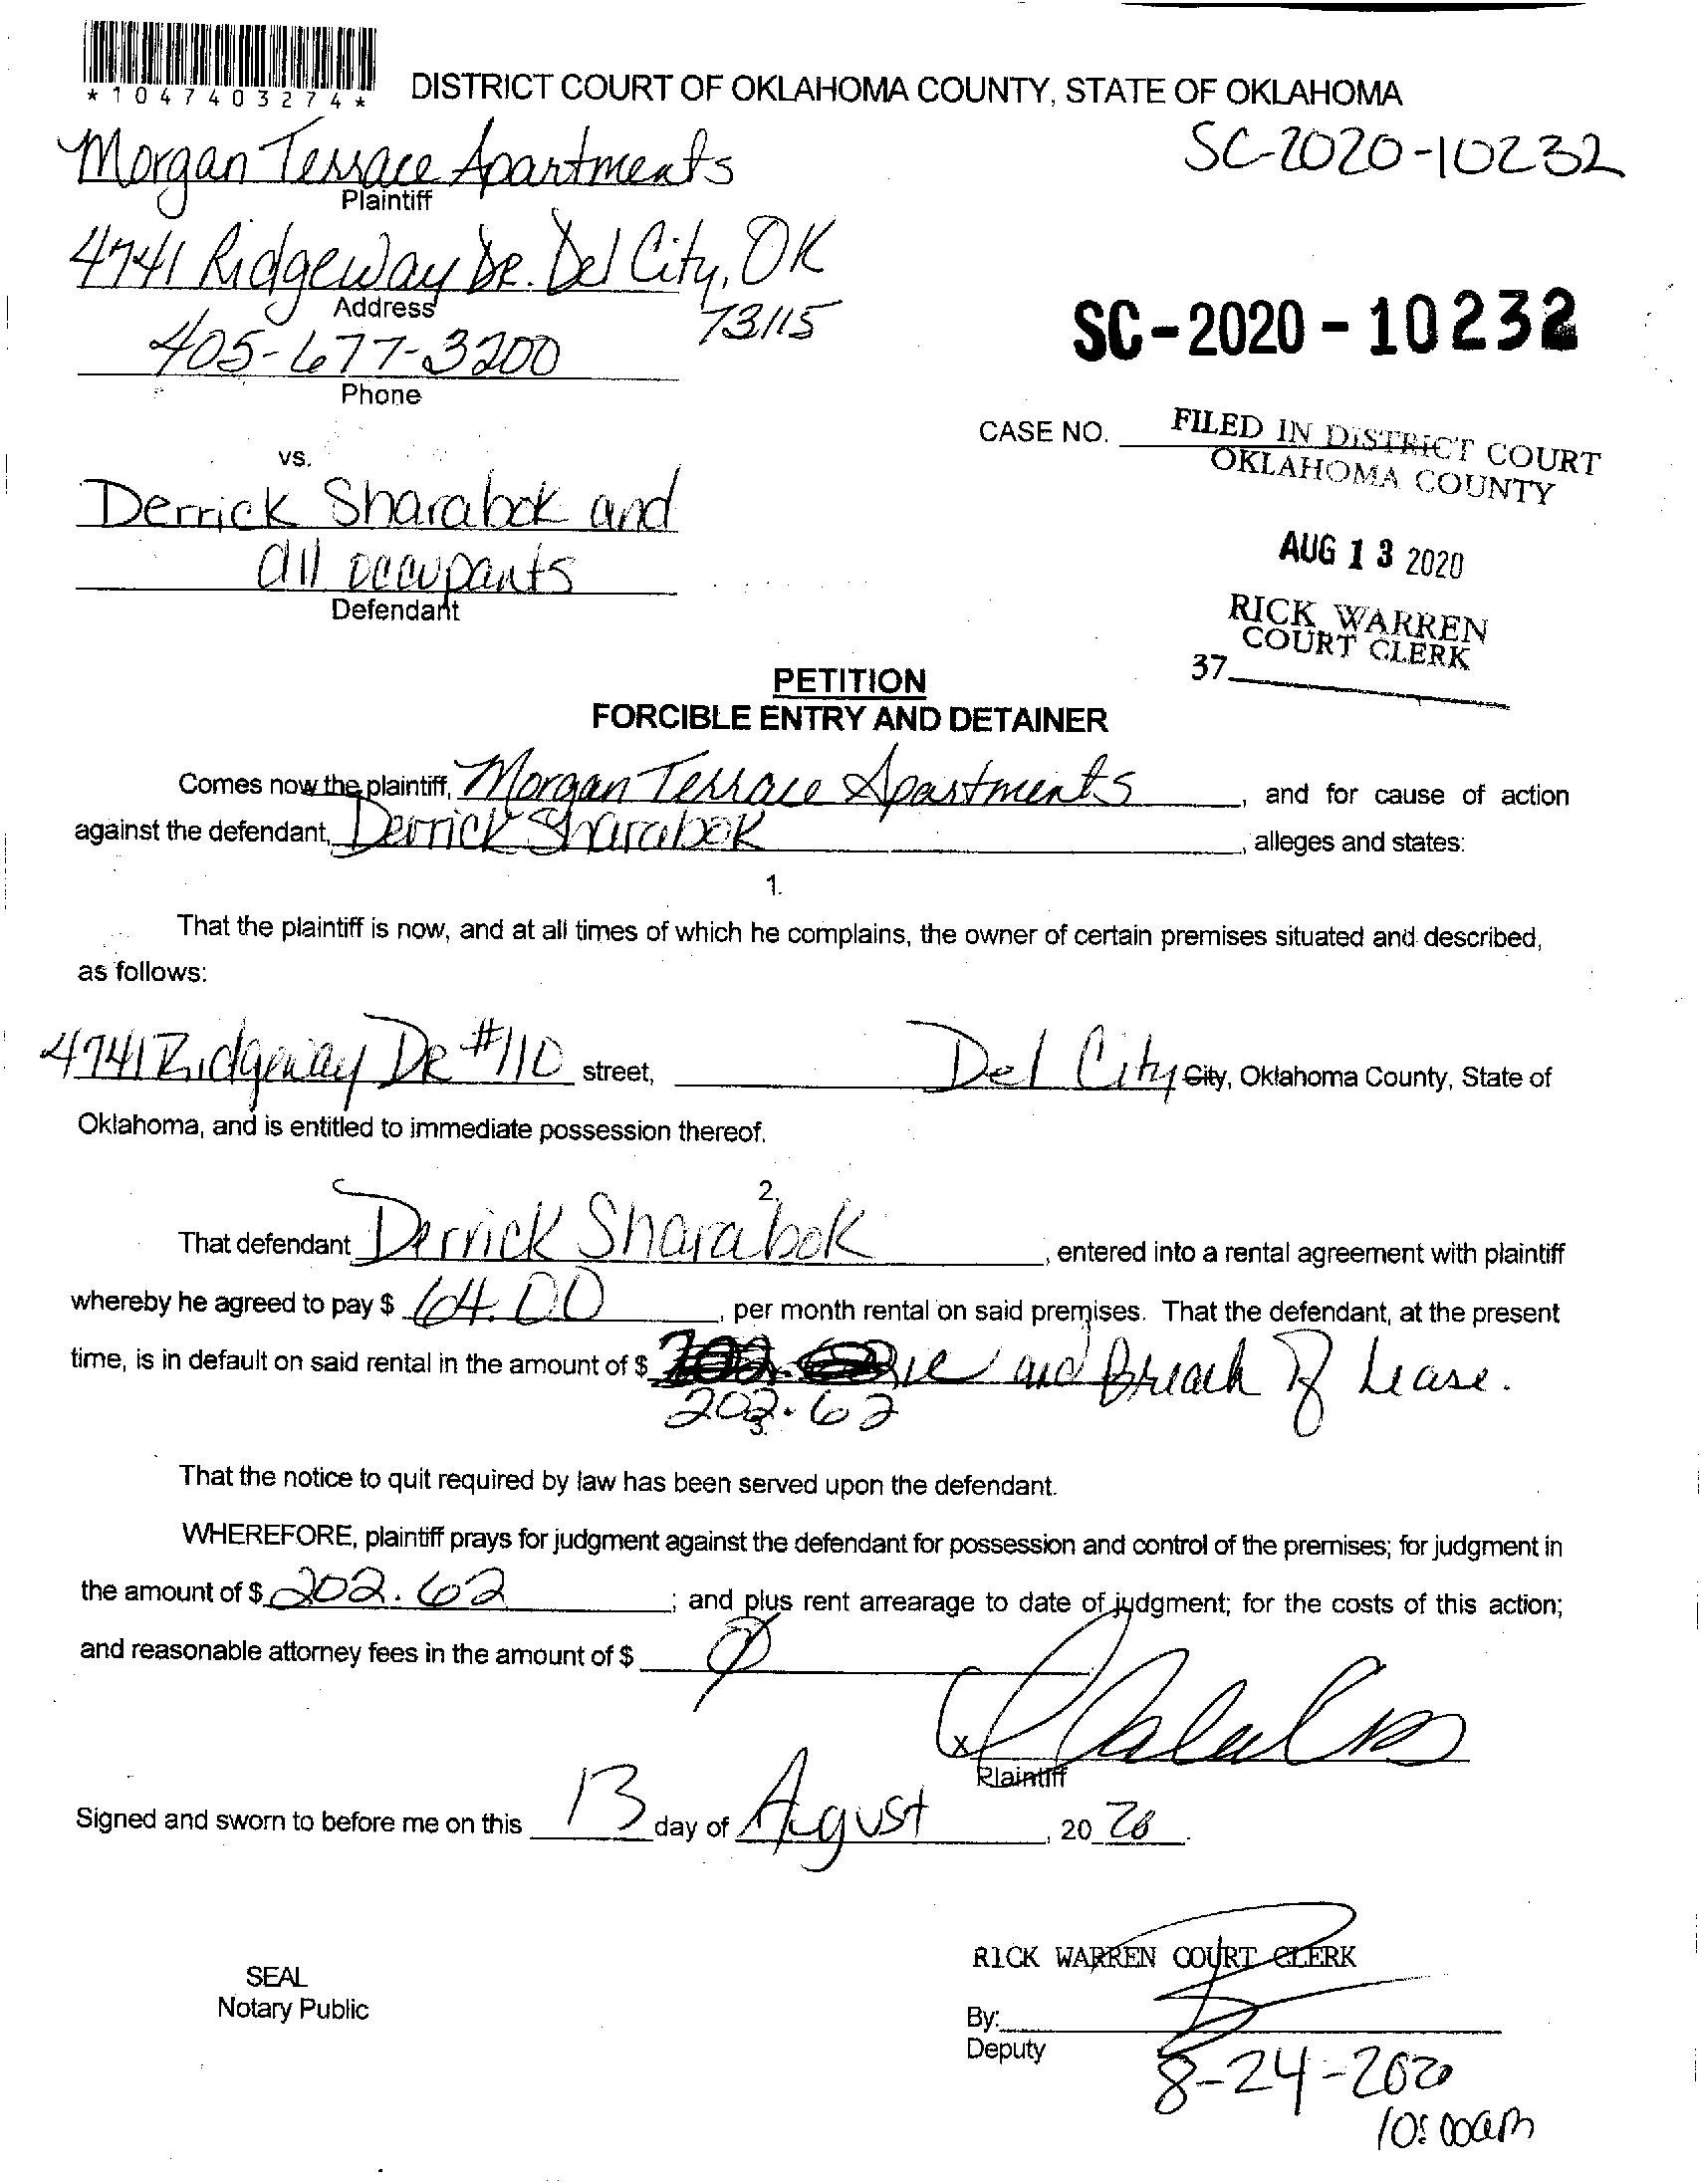 *1047403274*
DISTRICT COURT OF OKLAHOMA COUNTY, STATE OF OKLAHOMA
Morgan Terrace Apartments
Plaintiff
SC-2020-10232
4741 Ridgeway Dr. Del City, OK
Address
73115
SC-2020-10232
405-677-3200
Phone
CASE NO.
FILED IN DISTRICT COURT
OKLAHOMA COUNTY
vs.
Derrick Sharabok and
all occupants
Defendant
AUG 13 2020
RICK WARREN
COURT CLERK
37
PETITION
FORCIBLE ENTRY AND DETAINER
Comes now the plaintiff, Morgan Terrace Apartments, and for cause of action
against the defendant, Derrick Sharabok, alleges and states:
1.
That the plaintiff is now, and at all times of which he complains, the owner of certain premises situated and described,
as follows:
4741 Ridgeway DR #110 street, Del City City, Oklahoma County, State of
Oklahoma, and is entitled to immediate possession thereof.
2.
That defendant Derrick Sharabok, entered into a rental agreement with plaintiff
whereby he agreed to pay $ 64.00, per month rental on said premises. That the defendant, at the present
time, is in default on said rental in the amount of $ and Breach of Lease.
202.62
3.
That the notice to quit required by law has been served upon the defendant.
WHEREFORE, plaintiff prays for judgment against the defendant for possession and control of the premises; for judgment in
the amount of $ 202.62; and plus rent arrearage to date of judgment; for the costs of this action;
and reasonable attorney fees in the amount of $
X
Plaintiff
Signed and sworn to before me on this 13 day of August, 2020.
RICK WARREN COURT CLERK
SEAL
Notary Public
By:
Deputy
8-24-2020
10:00am